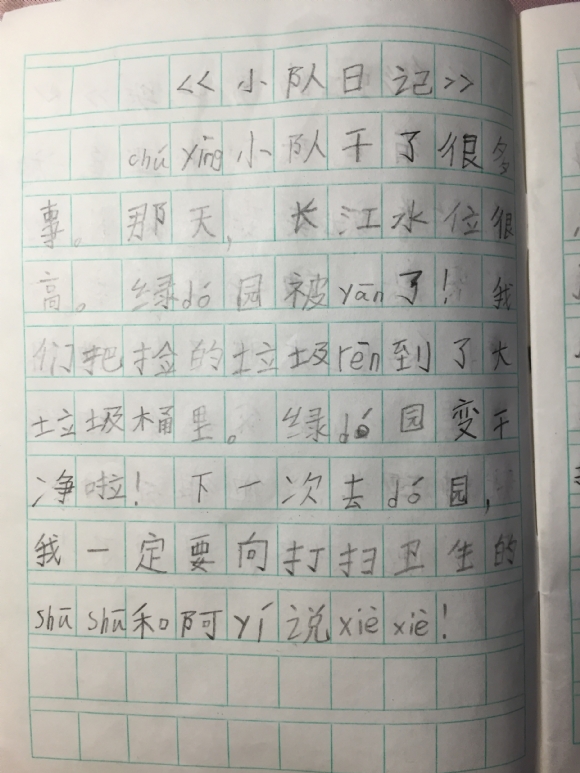 <<小队日记>>
chú xīng小队干了很多
事。那天，长江水位很
高。绿dó园被yān了！我
们把捡的垃圾rēn到了大
垃圾桶里。绿dó园变干
净啦！下一次去dó园，
我一定要向打扫卫生的
shū shū和阿yí说xiè xiè！